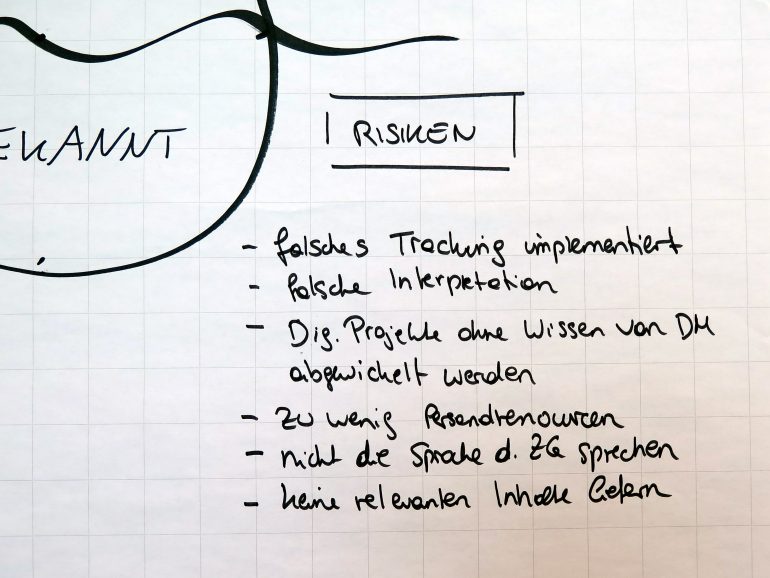 EKANNT
RISIKEN
- falsches Tracking implementiert
- falsche Interpretation
- Dig. Projekte ohne Wissen von DM
abgewickelt werden
- zu wenig Personalressourcen
- nicht die Sprache d. ZG sprechen
- keine relevanten Inhalte liefern